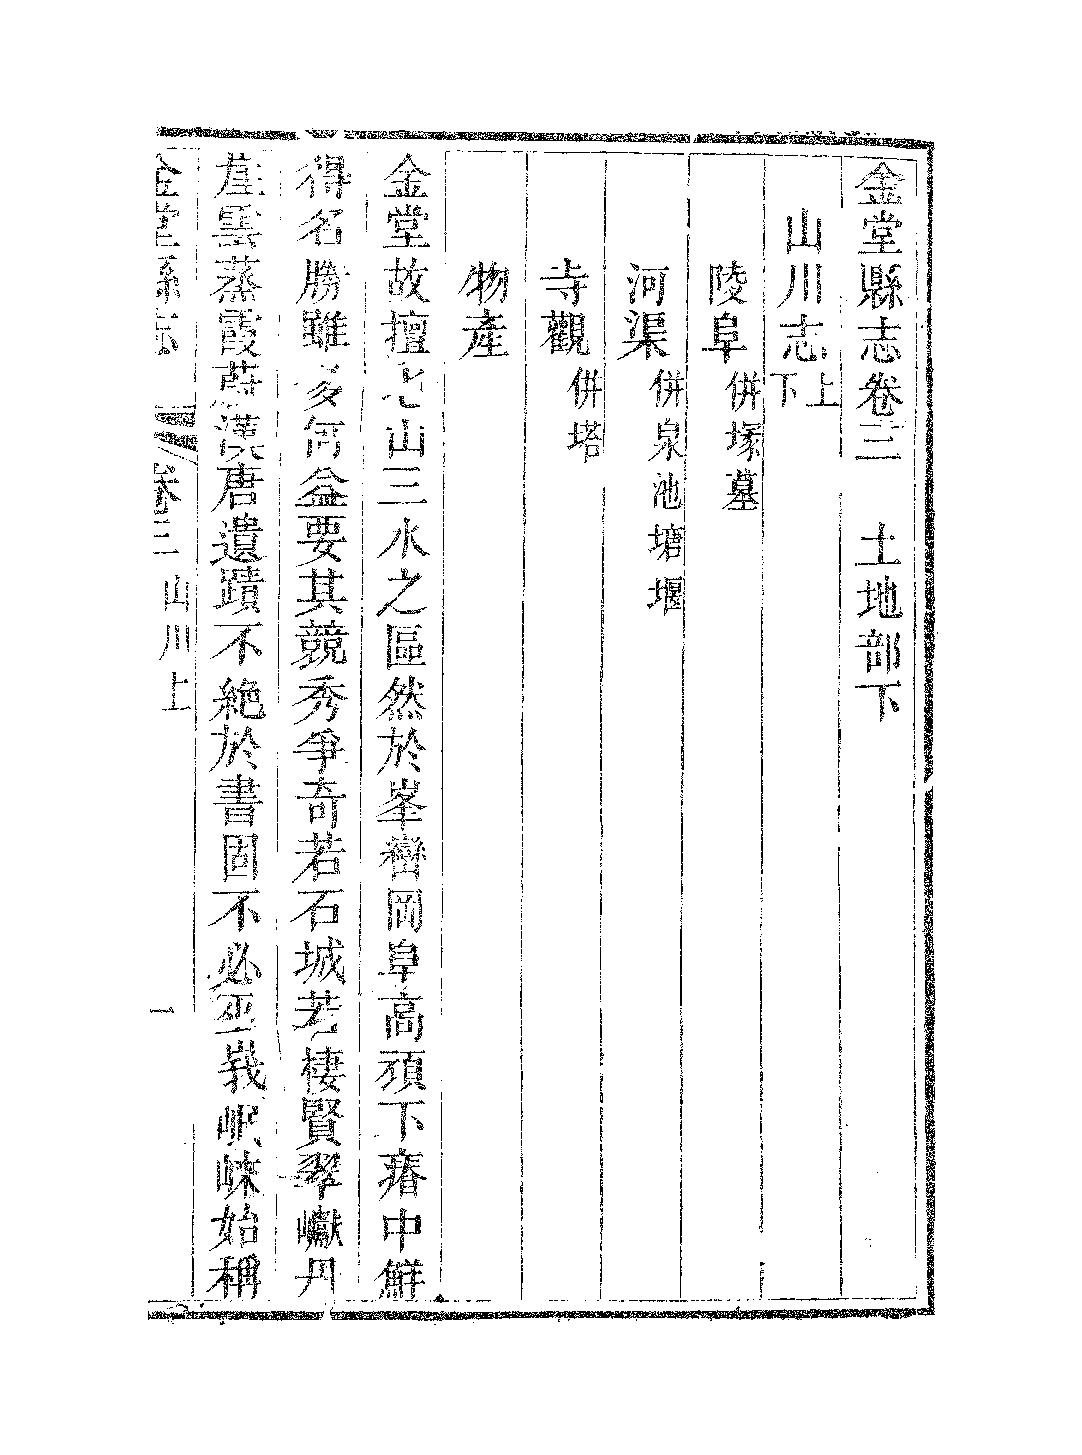 金堂縣志卷三　土地部下
山川志上下
陵阜併塚墓
河渠併泉池塘堰
寺觀併塔
物產
金堂故擅七山三水之區然於峯巒岡阜高頑下瘠中鮮
得名勝雖多何益要其競秀爭奇若石城若棲賢翠巘丹
崖雲蒸霞蔚漢唐遺蹟不絕於書固不必巫峩岷崍始稱
金堂縣志　卷三山川上　一